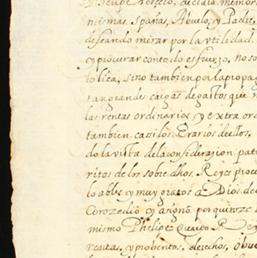 Phelipe Tercero, de clara memor
mismas Spañas, Abuelo, y Padre
deseando mirar por la vtilidad
y procurar con todo esfuerzo, no so
tolica, sino tambien por la propag
tan grandes cargas de gastos que n
las rentas ordinarias y extra ord
tambien casi los Erarios de los
do la vista de la consideraçion, pat
ritos de los sobredhos. Reyes proc
loables y muy gratos a Dios, de
Conzedio y asignò por quinze
mismo Phelipe Quarto Rey
rentas, y probentos, derechos, obu